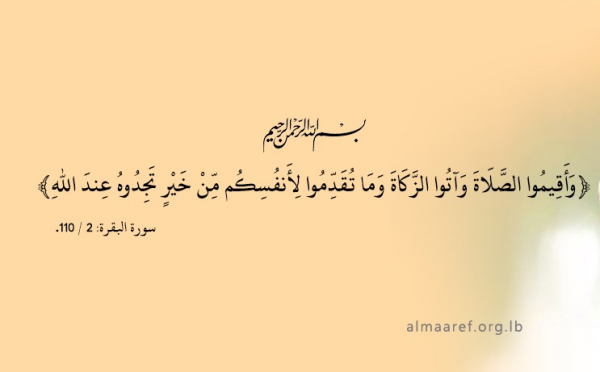 بسم الله الرحمن الرحيم
﴿وَأَقِيمُوا الصَّلَاةَ وَآتُوا الزَّكَاةَ وَمَا تُقَدِّمُوا لِأَنفُسِكُم مِّنْ خَيْرٍ تَجِدُوهُ عِندَ اللهِ﴾
سورة البقرة: 2 / 110.
almaaref.org.lb